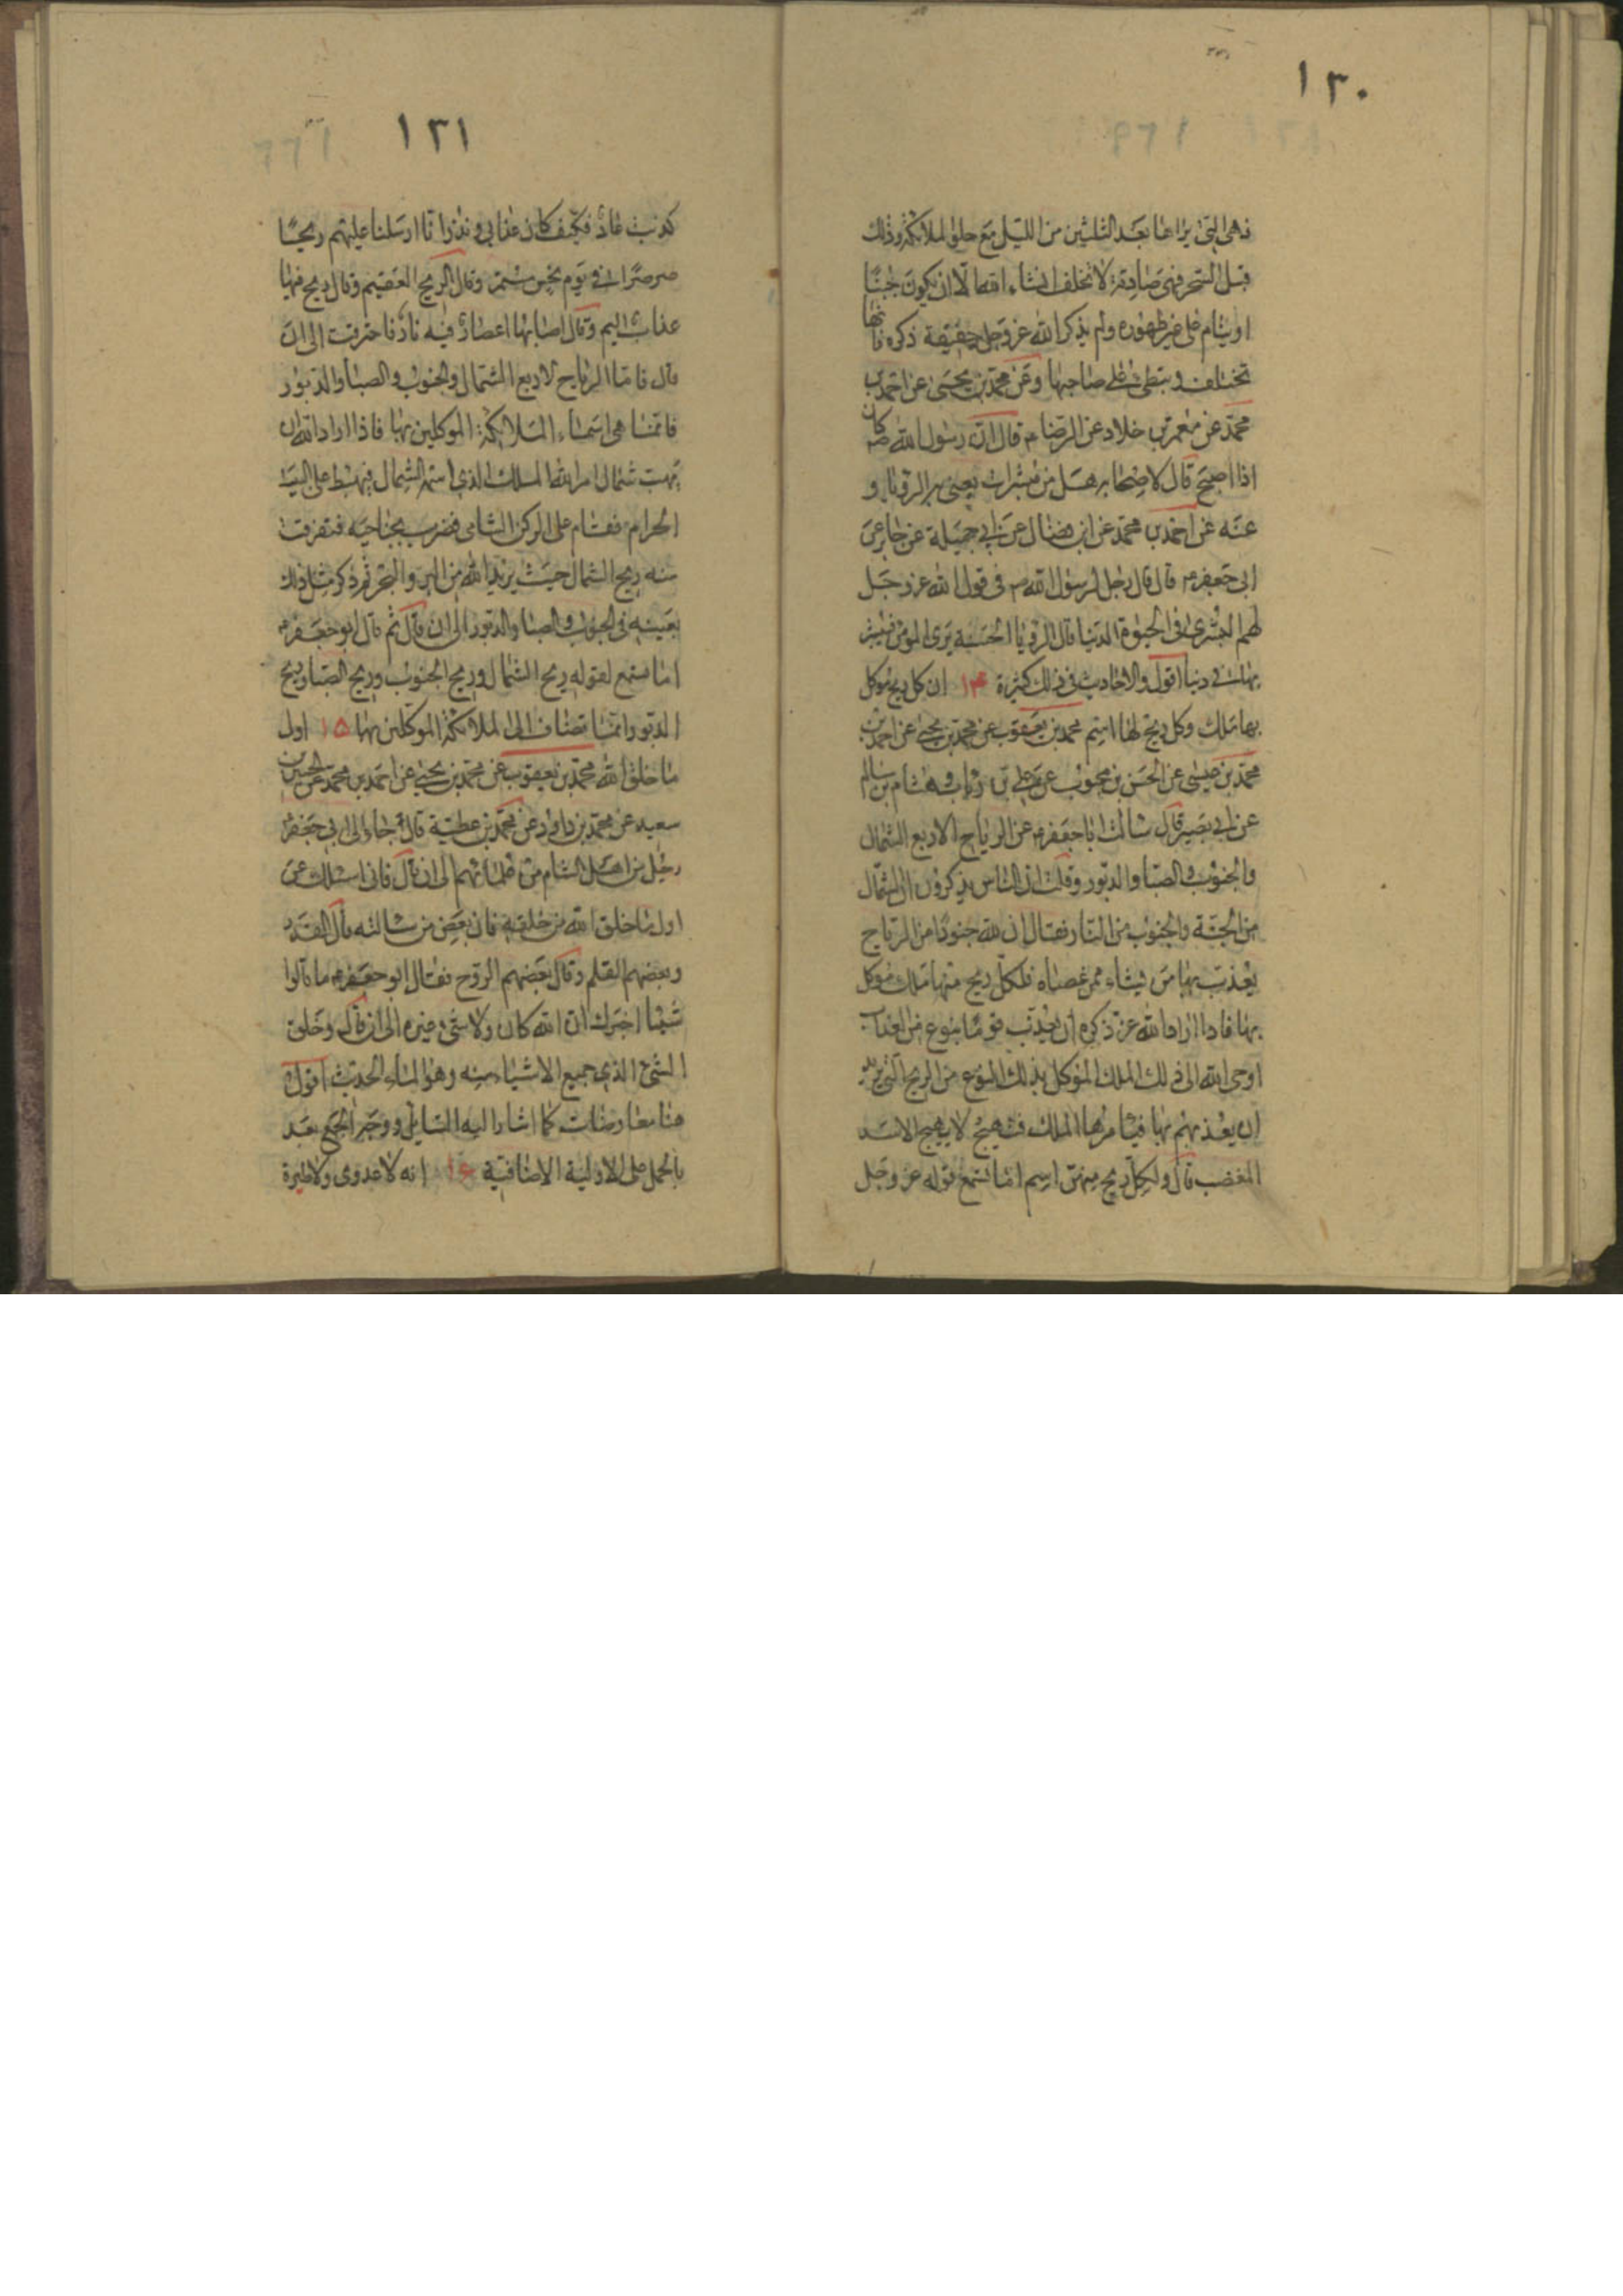 ١٣٠
فهي التي يراها بعد الثلثين من الليل مع حلول الملائكة وذلك
قبل السحر فهي صادقة لا تخلف انشاء الله الا ان يكون جنبا
او ينام على غير طهور ولم يذكر الله عز وجل حقيقة ذكره فانها
تختلف وتبطئ على صاحبها وعن محمد بن يحيى عن احمد بن
محمد عن معمر بن خلاد عن الرضا ع قال ان رسول الله ص كان
اذا اصبح قال لاصحابه هل من مبشرات يعني به الرؤيا و
عنه عن احمد بن محمد عن ابن فضال عن ابي جميلة عن جابر عن
ابي جعفر ع قال قال رجل لرسول الله ص في قول الله عز وجل
لهم البشرى في الحيوة الدنيا قال الرؤيا الحسنة يرى المؤمن فيبشر
بها في دنياه اقول والاحاديث في ذلك كثيرة ١٤ ان كل ريح موكل
بها ملك وكل ريح لها اسم محمد بن يعقوب عن محمد بن يحيى عن احمد بن
محمد بن عيسى عن الحسن بن محبوب عن علي بن رئاب وهشام بن سالم
عن ابي بصير قال سالت ابا جعفر ع عن الرياح الاربع الشمال
والجنوب والصبا والدبور وقلت ان الناس يذكرون ان الشمال
من الجنة والجنوب من النار فقال ان لله جنودا من الرياح
يعذب بها من يشاء ممن عصاه فلكل ريح منها ملك موكل
بها فاذا اراد الله عز ذكره ان يعذب قوما بنوع من العذاب
اوحى الله الى ذلك الملك الموكل بذلك النوع من الريح التي يريد
ان يعذبهم بها فيامرها الملك فتهيج كما يهيج الاسد
المغضب قال ولكل ريح منهن اسم اما تسمع قوله عز وجل
١٣١
كذبت عاد فكيف كان عذابي ونذر انا ارسلنا عليهم ريحا
صرصرا في يوم نحس مستمر وقال الريح العقيم وقال ريح فيها
عذاب اليم وقال اصابها اعصار فيه نار فاحترقت الى ان
قال فاما الرياح الاربع الشمال والجنوب والصبا والدبور
فانما هي اسماء الملائكة الموكلين بها فاذا اراد الله ان
تهب شمال امر الله الملك الذي اسمه الشمال فيهبط على البيت
الحرام فقام على الركن الشامي فضرب بجناحيه فتفرقت
منه ريح الشمال حيث يريد الله من البر والبحر ثم ذكر مثل ذلك
بعينه في الجنوب والصبا والدبور الى ان قال ثم قال ابو جعفر ع
اما تسمع لقوله ريح الشمال وريح الجنوب وريح الصبا وريح
الدبور انما تضاف الى الملائكة الموكلين بها ١٥ اول
ما خلق الله محمد بن يعقوب عن محمد بن يحيى عن احمد بن محمد عن الحسين بن
سعيد عن محمد بن داود عن محمد بن عطية قال جاء الى ابي جعفر ع
رجل من اهل الشام من علمائهم الى ان قال فاني اسئلك عن
اول ما خلق الله من خلقه فان بعض من سالته قال القدر
وبعضهم القلم وقال بعضهم الروح فقال ابو جعفر ع ما قالوا
شيئا اخبرك ان الله كان ولا شيء غيره الى ان قال وخلق
الشيء الذي جميع الاشياء منه وهو الماء الحديث اقول
هنا معارضات كما اشار اليه السايل ووجه الجمع بعد
بالحمل على الاولية الاضافية ١٦ انه لا عدوى ولا طيرة